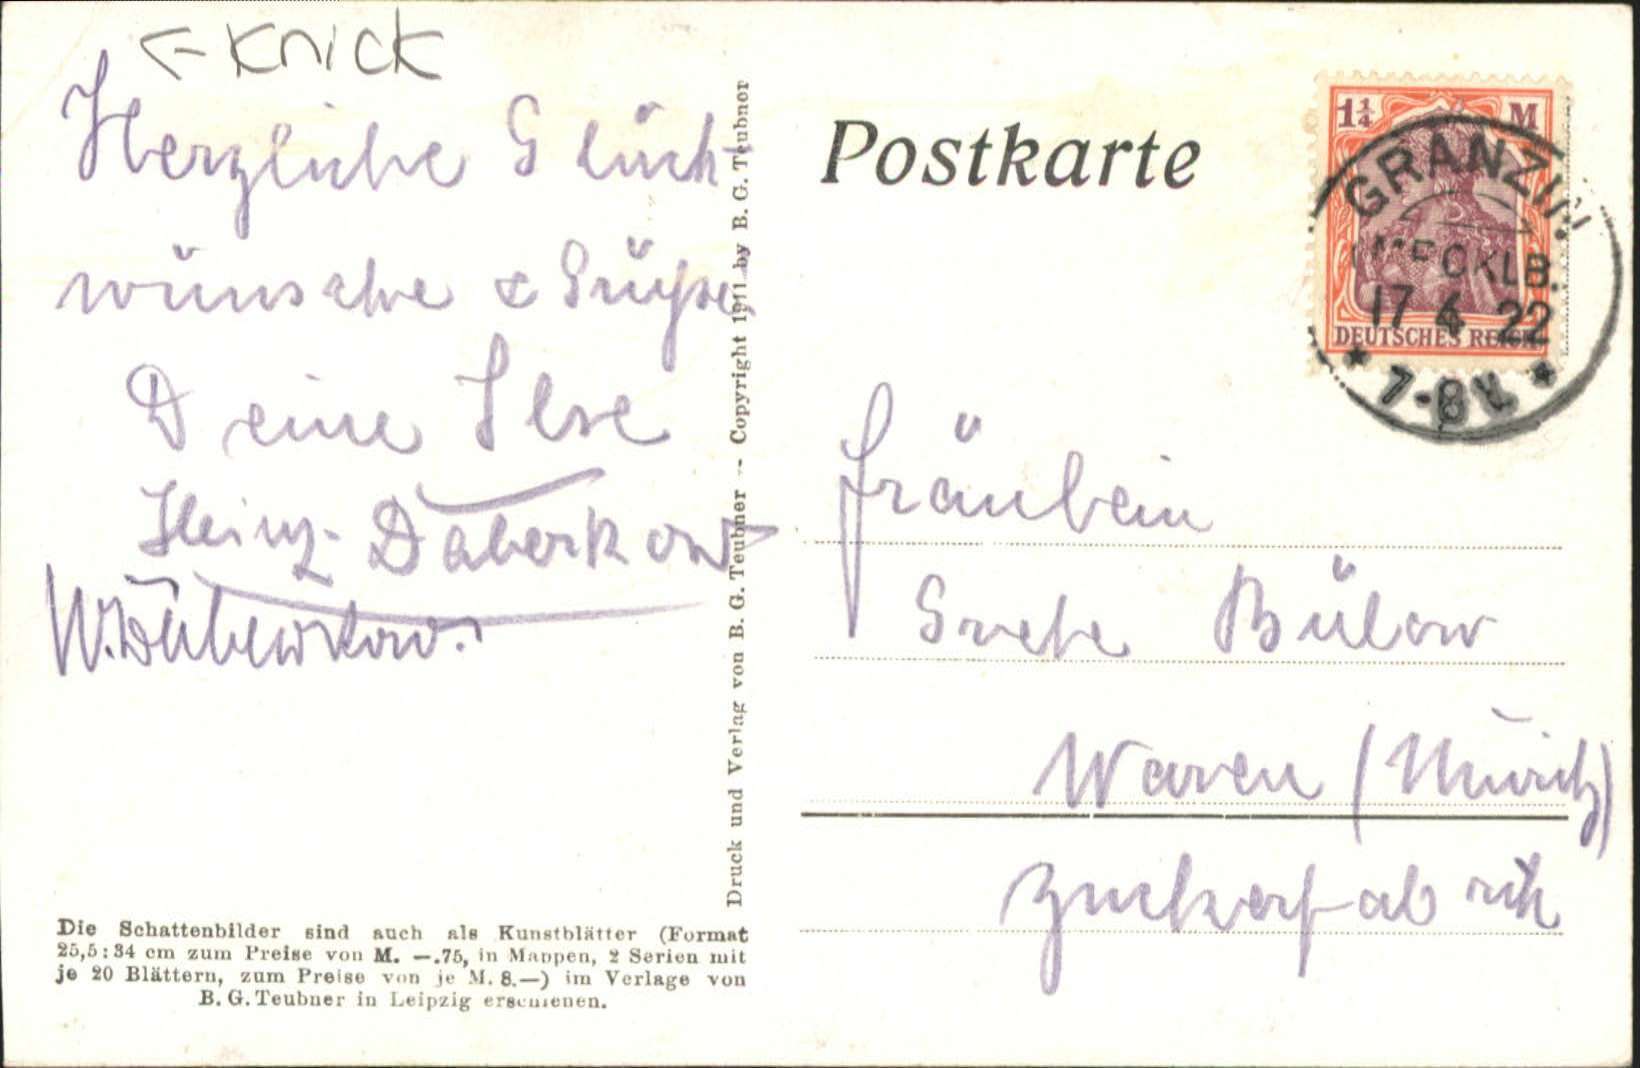 ← Knick
Herzliche Glück-
wünsche & Grüße
Deine Ilse
Heinz Daberkow
W. Daberkow.
Die Schattenbilder sind auch als Kunstblätter (Format
25,5:34 cm zum Preise von M. —.75, in Mappen, 2 Serien mit
je 20 Blättern, zum Preise von je M. 8.—) im Verlage von
B. G. Teubner in Leipzig erschienen.
Druck und Verlag von B. G. Teubner -- Copyright 1911 by B. G. Teubner
Postkarte
1¼ M
DEUTSCHES REICH
GRANZIN
(MECKLB.
17 4 22
* 7-8V. *
Fräulein
Grete Bülow
Waren (Müritz)
Zuckerfabrik